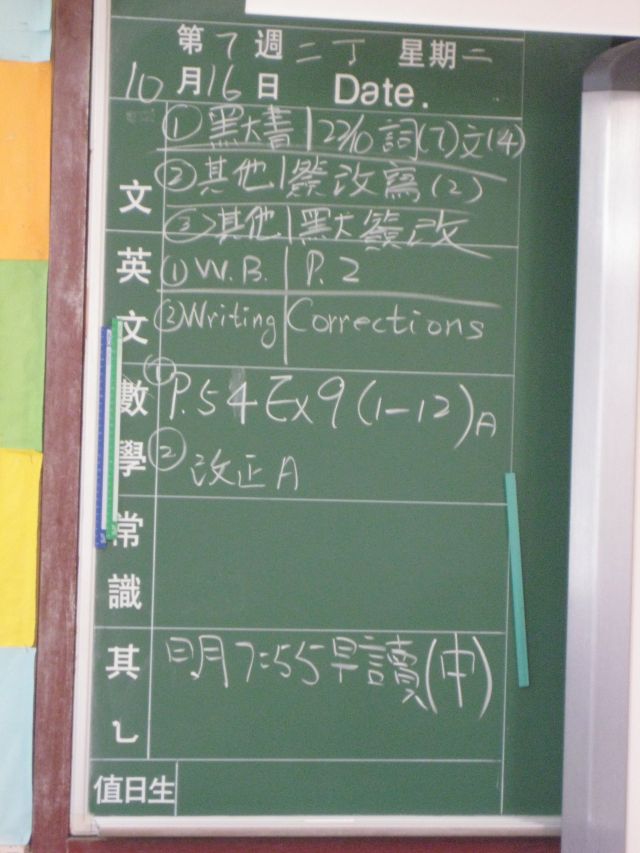 第7週二丁 星期二
10月16日 Date.
文
① 默書 | 22/10 詞(7)文(4)
② 其他 | 簽改寫(2)
③ 其他 | 默簽改
英文
① W.B. | P.2
② Writing | Corrections
數學
① P.54 Ex9 (1-12)A
② 改正A
常識
其
明 7:55 早讀(中)
值日生